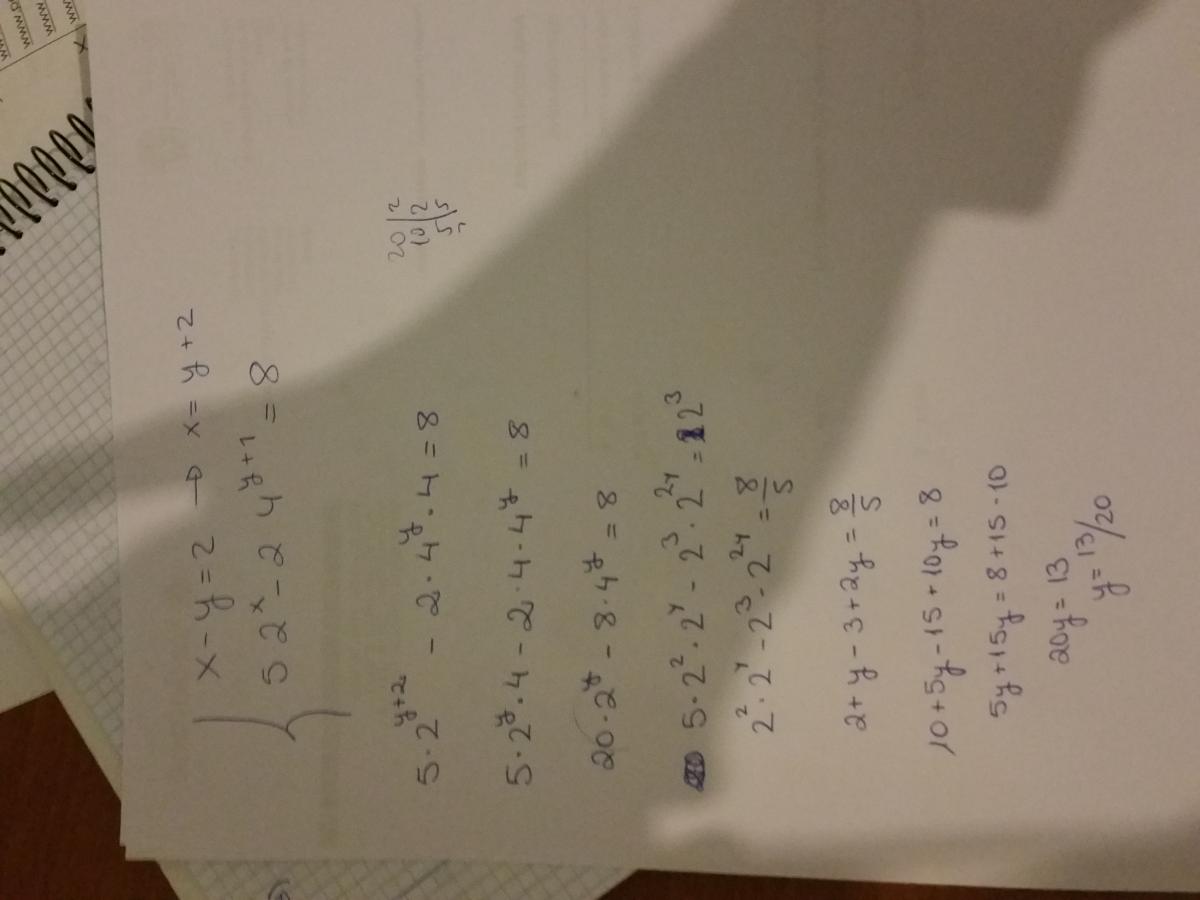 x - y = 2 → x = y + 2
5 2^x - 2 4^{y+1} = 8
20 | 2
10 | 2
5 | 5
5 · 2^{y+2} - 2 · 4^y · 4 = 8
5 · 2^y · 4 - 2 · 4 · 4^y = 8
20 · 2^y - 8 · 4^y = 8
5 · 2^2 · 2^y - 2^3 · 2^{2y} = 2^3
2^2 · 2^y - 2^3 · 2^{2y} = 8/5
2 + y - 3 + 2y = 8/5
10 + 5y - 15 + 10y = 8
5y + 15y = 8 + 15 - 10
20y = 13
y = 13/20